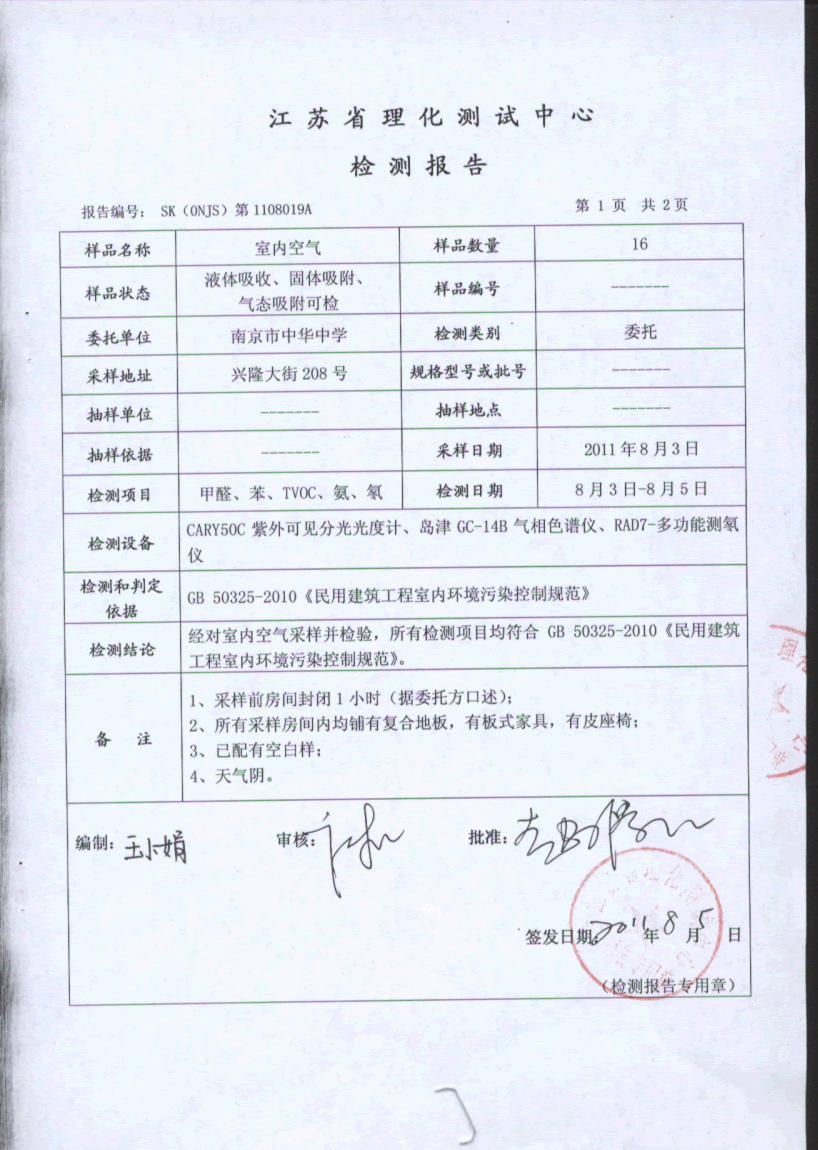 江苏省理化测试中心
检测报告
报告编号： SK（0NJS）第 1108019A
第 1 页 共 2 页
样品名称 室内空气 样品数量 16
样品状态 液体吸收、固体吸附、 样品编号 -------
气态吸附可检
委托单位 南京市中华中学 检测类别 委托
采样地址 兴隆大街 208 号 规格型号或批号 -------
抽样单位 ------- 抽样地点 -------
抽样依据 ------- 采样日期 2011 年 8 月 3 日
检测项目 甲醛、苯、TVOC、氨、氡 检测日期 8 月 3 日-8 月 5 日
检测设备 CARY50C 紫外可见分光光度计、岛津 GC-14B 气相色谱仪、RAD7-多功能测氡
仪
检测和判定
依据
GB 50325-2010《民用建筑工程室内环境污染控制规范》
检测结论 经对室内空气采样并检验，所有检测项目均符合 GB 50325-2010《民用建筑
工程室内环境污染控制规范》。
备 注
1、采样前房间封闭 1 小时（据委托方口述）；
2、所有采样房间内均铺有复合地板，有板式家具，有皮座椅；
3、已配有空白样；
4、天气阴。
编制： 王小娟 审核： 批准：
签发日期： 2011 年 8 月 5 日
（检测报告专用章）